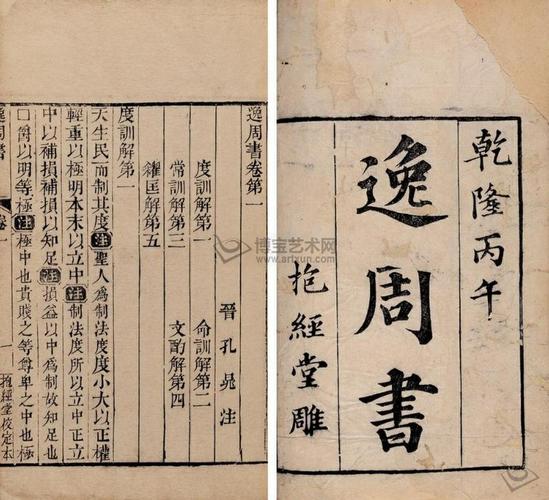 乾隆丙午
逸周書
抱經堂雕
逸周書卷第一
晉孔晁注
度訓解第一 命訓解第二
常訓解第三 文酌解第四
糴匡解第五
度訓解第一
天生民而制其度注聖人爲制法度度小大以正權
輕重以極明本末以立中注制法度所以立中正立
中以補損補損以知足注損益以中爲制故知足也
□爵以明等極注極中也貴賤之等尊卑之中也極
逸周書 卷一 一 抱經堂校定本
博宝艺术网
www.artxun.com